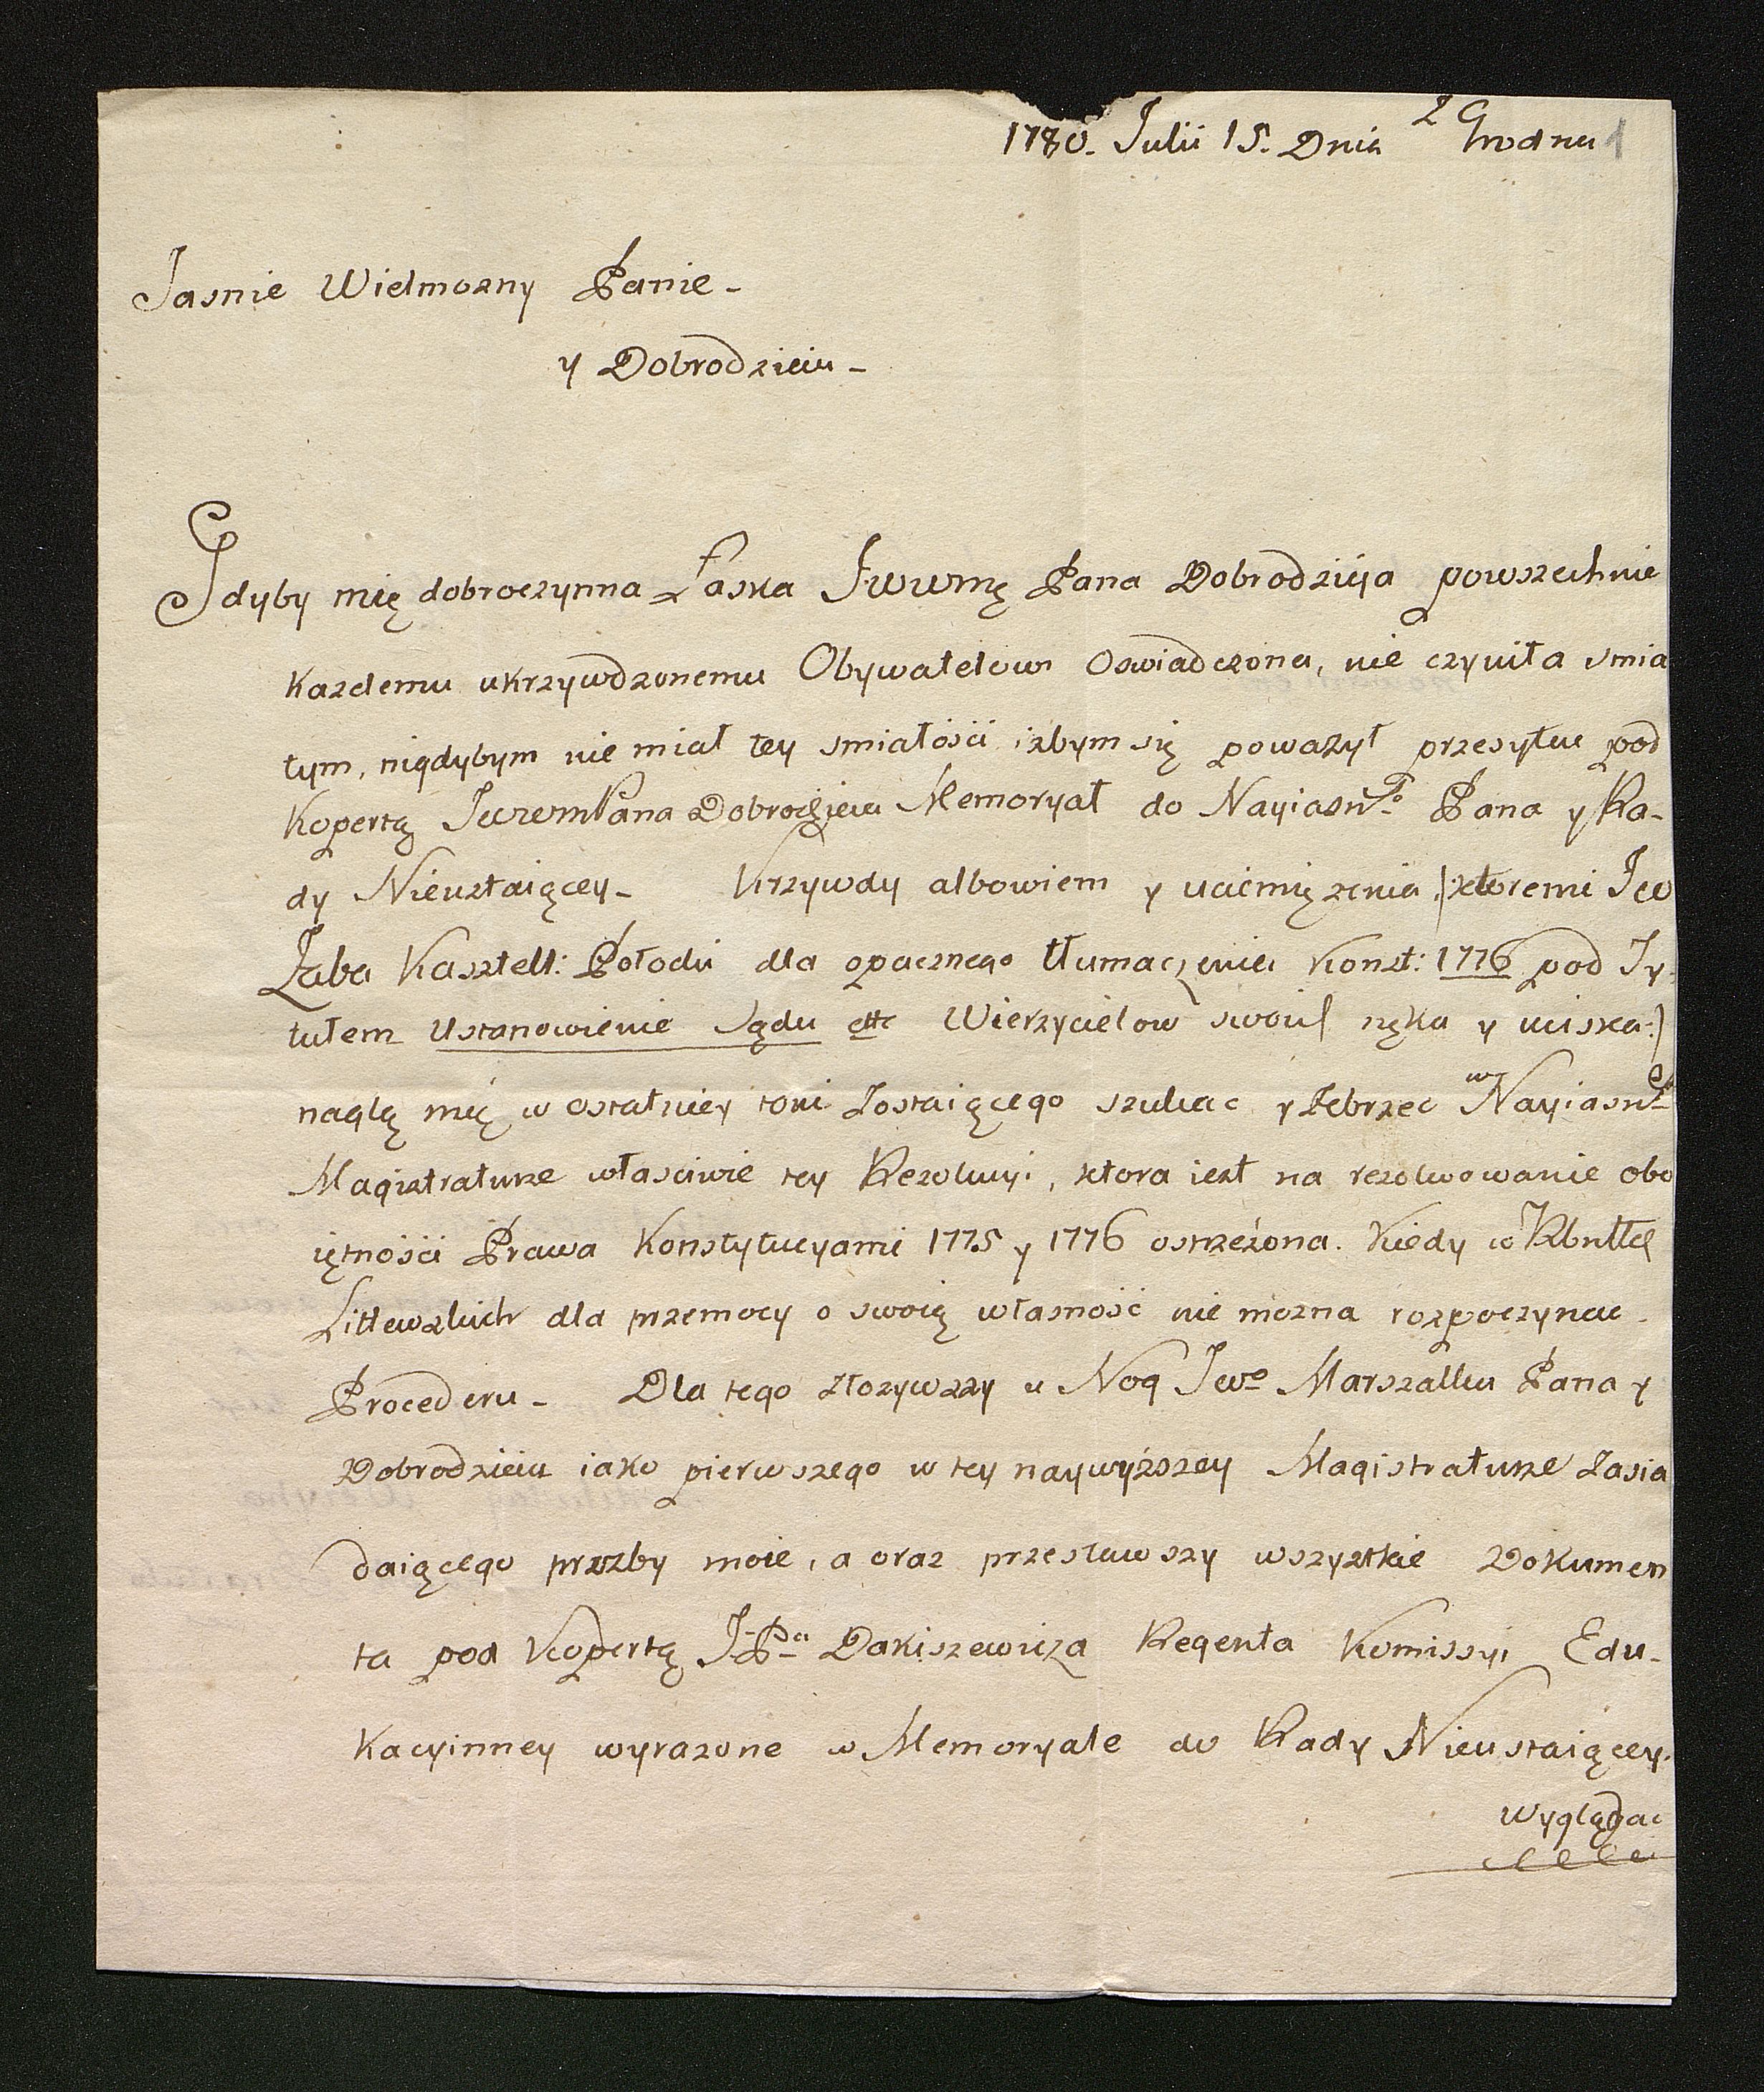 1780. Julii 15. Dnia z Grodna 1
Jasnie Wielmozny Panie -
y Dobrodzieiu -
Gdyby mię dobroczynna Łaska Jwwmę Pana Dobrodzieja powszechnie
kazdemu ukrzywdzonemu Obywatelowi Oswiadczona, nie czyniła smia
łym, nigdybym nie miał tey smiałości izbym się powazył przesyłac pod
Kopertą Pana Dobrodzieia Memoryał do Nayiasn:º Pana y Ra-
dy Nieustaiącey - Krzywdy albowiem y uciemięzenia /:ktoremi Jw
Żaba Kasztell: Połocki dla opacznego tłumaczenia Konst: 1776 pod Ty
tułem Ustanowienie Sądu etc Wierzycielow swoich nęka y uciska:/
naglą mię w ostatniey toni Zostaiącego szukac y Żebrzec w Nayiasn:
Magistraturze własciwie tey Rezolucyi, ktora iest na rezolwowanie obo
iętności Prawa Konstytucyami 1775 y 1776 ostrzeżona. Kiedy w
Littewskich dla przemocy o swoię własność nie mozna rozpoczynac
Procederu - Dla tego złozywszy u Nog Jwº Marszałka Pana y
Dobrodzieia iako pierwszego w tey naywyższey Magistraturze Zasia
daiącego prozby moie, a oraz przesławszy wszystkie Dokumen
ta pod Kopertą JPª Dakiszewicza Regenta Komissyi Edu-
kacyinney wyrazone w Memoryale do Rady Nieustaiącey.
wyglądac